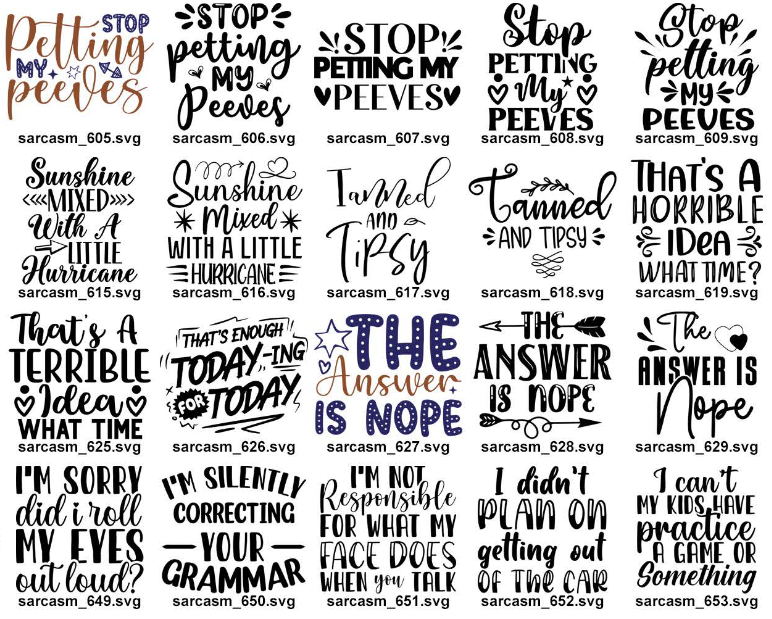 STOP
Petting
MY
peeves
sarcasm_605.svg
STOP
petting
MY
Peeves
sarcasm_606.svg
STOP
PETTING MY
PEEVES
sarcasm_607.svg
Stop
PETTING
My
PEEVES
sarcasm_608.svg
Stop
petting
MY
PEEVES
sarcasm_609.svg
Sunshine
MIXED
With A
LITTLE
Hurricane
sarcasm_615.svg
Sunshine
Mixed
WITH A LITTLE
HURRICANE
sarcasm_616.svg
Tanned
AND
Tipsy
sarcasm_617.svg
Tanned
AND TIPSY
sarcasm_618.svg
THAT'S A
HORRIBLE
IDea
WHAT TIME?
sarcasm_619.svg
That's A
TERRIBLE
Idea
WHAT TIME
sarcasm_625.svg
THAT'S ENOUGH
TODAY-ING
FOR
TODAY
sarcasm_626.svg
THE
Answer
IS NOPE
sarcasm_627.svg
THE
ANSWER
IS NOPE
sarcasm_628.svg
The
ANSWER IS
Nope
sarcasm_629.svg
I'M SORRY
did i roll
MY EYES
out loud?
sarcasm_649.svg
I'M SILENTLY
CORRECTING
YOUR
GRAMMAR
sarcasm_650.svg
I'M NOT
Responsible
FOR WHAT MY
FACE DOES
WHEN you TALK
sarcasm_651.svg
I didn't
PLAN ON
getting out
OF THE CAR
sarcasm_652.svg
I can't
MY KIDS HAVE
practice
A GAME OR
Something
sarcasm_653.svg